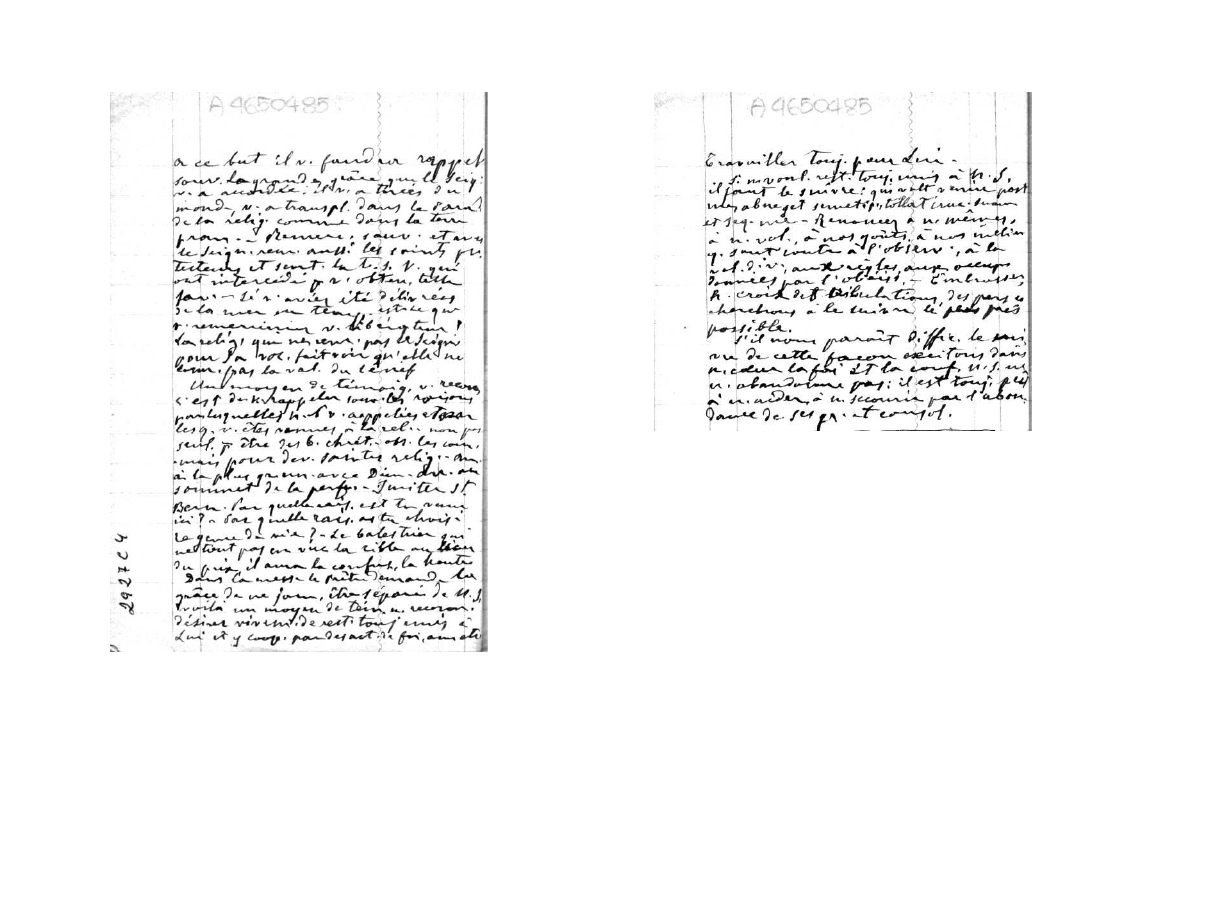 A 4650485
a ce but il v. faudra rappel
souv. la grande grâce que le Seig.
v. a accordée: il v. a tirées du
monde, v. a transpl. dans le Parad
de la relig. comme dans la terre
prom. - Remerc. souv. et avec
le Seign. rem. aussi les saints pr.
tecteurs et surt. la T. S. V. qui
ont intercédé p. v. obten. telle
fav. - Si v. aviez été délivrées
de la mer en temp. est-ce que
v. remercieriez v. libérateur?
La relig. que ne rem. pas le Seign
pour sa voc. fait voir qu'elle ne
conn. pas la val. du bénéf
Un moyen de témoig. v. recon
c'est de v. rappeler souv. les raisons
par lesquelles N. S. v. a appelées et par
lesq. v. êtes venues à la rel. non pas
seul. p. être des b. chrét. obs. les com.
mais pour dev. saintes relig.
à la plus gr. un. avec Dieu
sommet de la perf. - Imiter St
Bern. Par quelle rais. est tu venu
ici? - Par quelle rais. as tu choisi
ce genre de vie? - Le balestrier qui
ne tient pas en vue la cible au lieu
du prix il aura la confus. la honte
Dans la messe le prêtre demande la
grâce de ne jam. être séparé de N. S.
voilà un moyen de tém. n. reconn.
désirer vivem. de rest. touj. unis à
Lui et y coop. par des act. de foi, am. etc
2927C4
A 4650485
Travailler touj. pour Lui -
Si n. voul. rest. touj. unis à N. S.
il faut le suivre: qui vult venire post
me, abneget semetip., tollat cruc. suam
et seq. me - Renoncer à n. mêmes,
à n. vol., à nos goûts, à nos inclin
q. sont contr. à l'observ., à la
vol. div., aux règles, aux occup
données par l'obéiss. - Embrasser
n. croix des tribulations, des pers
cherchons à le suivre le plus près
possible.
S'il nous paraît diffic. le sui
vre de cette façon excitons dans
n. cœur la foi et la conf. N. S. ne
n. abandonne pas: il est touj. prêt
à n. aider, à n. secourir par l'abon
dance de ses gr. et consol.